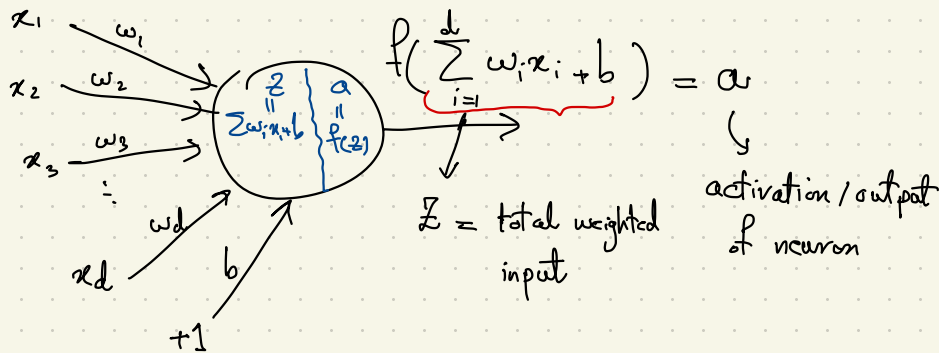 x₁
ω₁
x₂
ω₂
x₃
ω₃
⋮
x_d
ω_d
+1
b
z
=
∑ωᵢxᵢ+b
a
=
f(z)
f(∑_{i=1}^{d} ωᵢxᵢ + b) = a
Z = total weighted
input
activation/output
of neuron